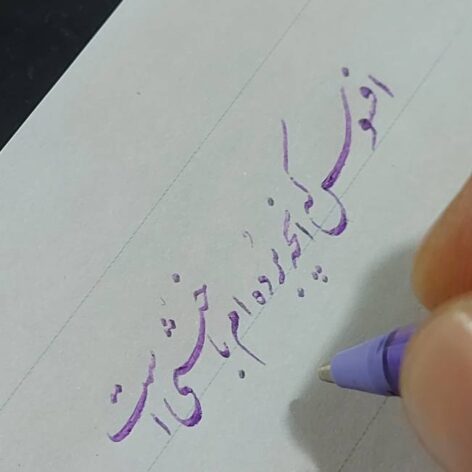 افسوس که آنچه بُرده ام باختنی است